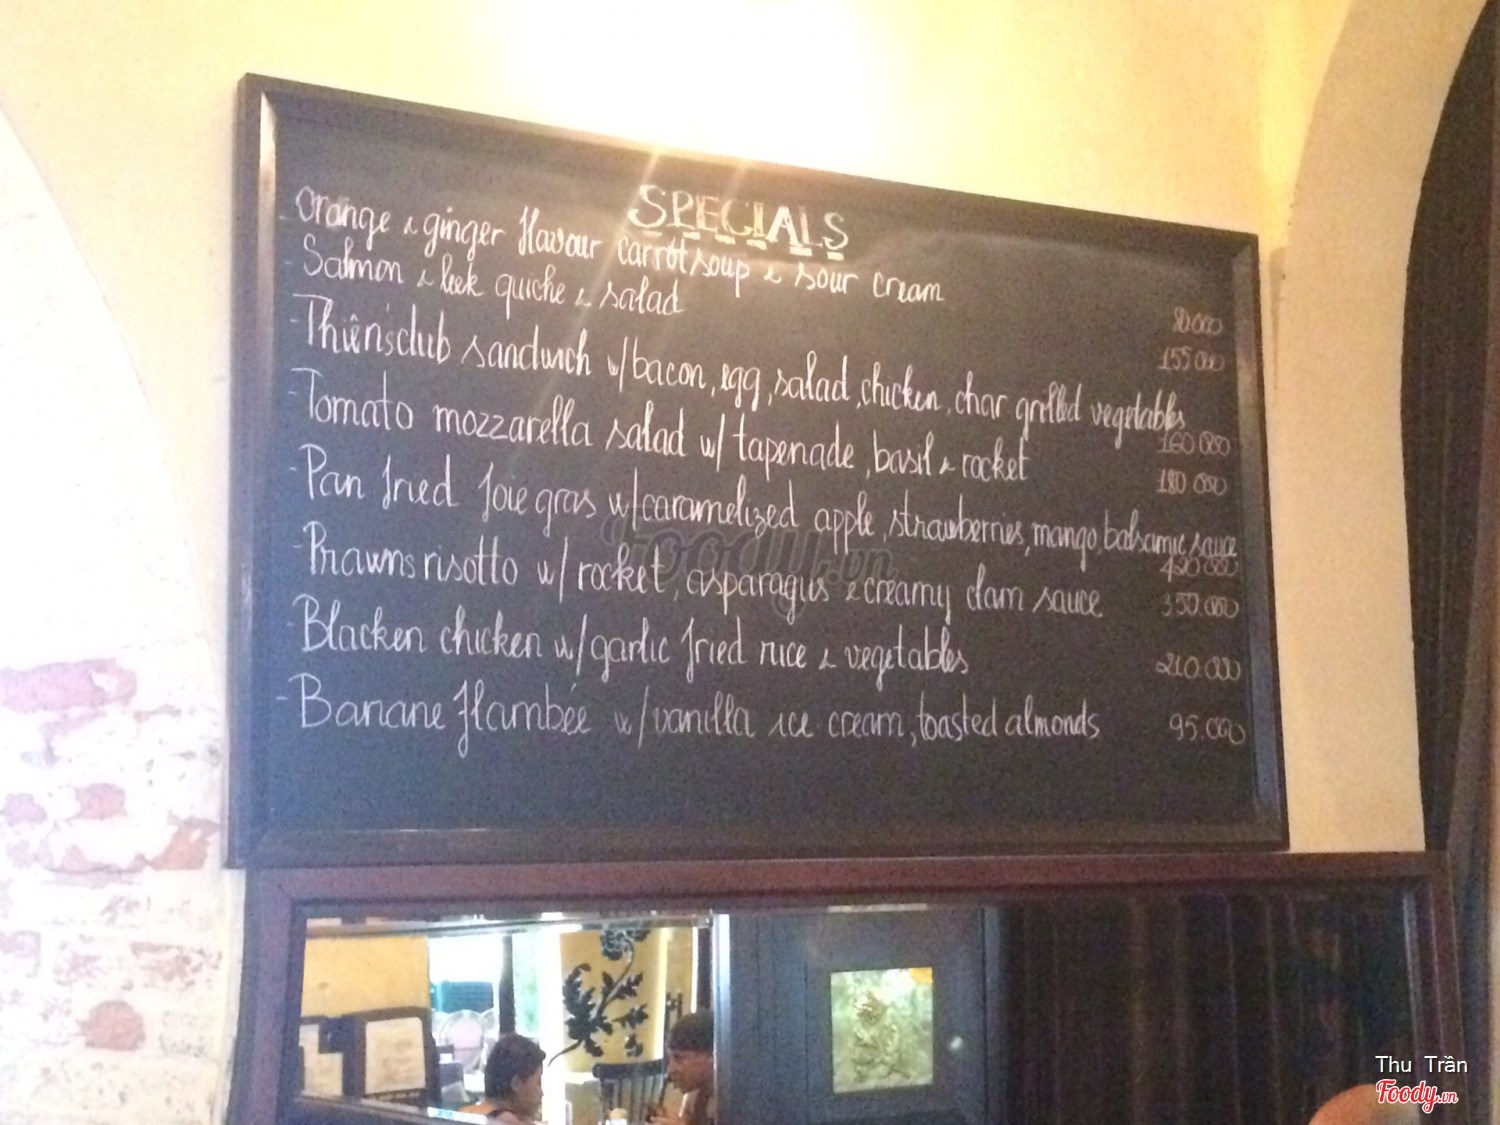 SPECIALS
- Orange & ginger flavour carrot soup & sour cream 80.000
- Salmon & leek quiche & salad 155.000
- Thiên's club sandwich w/ bacon, egg, salad, chicken, char grilled vegetables 160.000
- Tomato mozzarella salad w/ tapenade, basil & rocket 180.000
- Pan fried foie gras w/ caramelized apple, strawberries, mango, balsamic sauce
- Prawns risotto w/ rocket, asparagus & creamy clam sauce 350.000
- Blacken chicken w/ garlic fried rice & vegetables 210.000
- Banane flambée w/ vanilla ice cream, toasted almonds 95.000
Foody.vn
Thu Trần
Foody.vn